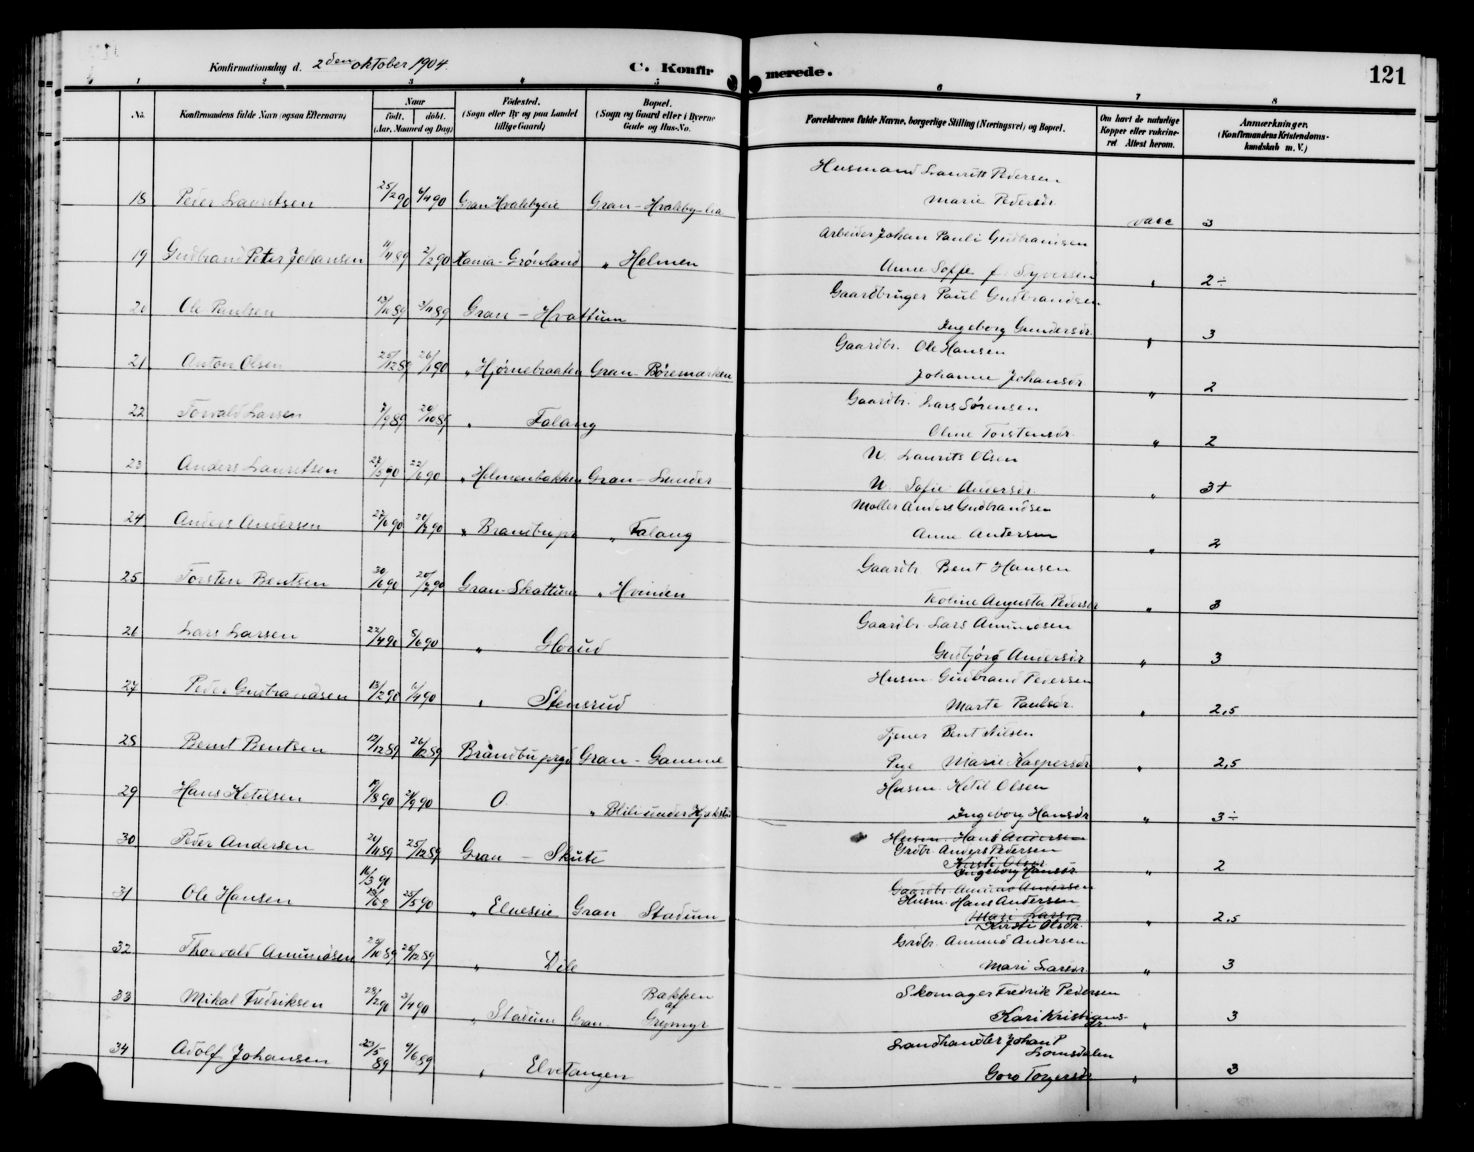 Konfirmationsdag d. 2den oktober 1904.
C. Konfirmerede.
121
1 2 3 4 5 6 7 8
No.
Konfirmandens fulde Navn (ogsaa Efternavn)
Naar
født, døbt.
(Aar, Maaned og Dag)
Fødested.
(Sogn eller By og paa Landet
tillige Gaard)
Bopæl.
(Sogn og Gaard eller i Byerne
Gade og Hus-No.
Forældrenes fulde Navne, borgerlige Stilling (Næringsvei) og Bopæl.
Om havt de naturlige
Kopper eller vaccine-
ret Attest herom.
Anmærkninger,
(Konfirmandens Kristendoms-
kundskab m. V.)
Husmand Laurits Pedersen
18 Peder Lauritsen 25/2 90 6/4 90 Gran Hvalebyeie Gran - Hvaleby Marie Pedersdr vacc 3
Arbeider Johan Pauli Gudbrandsen
19 Gudbrand Peter Johansen 11/11 89 2/2 90 Xania - Grønland " Helmen Anne Soffie f. Syversen " 2÷
Gaardbruger Paul Gudbrandsen
20 Ole Paulsen 89 3/11 89 Gran - Hvattum Ingeborg Gundersdr " 3
Gaardbr. Ole Hansen
21 Anton Olsen 25/12 89 26/1 90 " Hjørnebraaten Gran - Børemarken Johanne Johansdr " 2
Gaardbr. Lars Sørensen
22 Torvald Larsen 7/9 89 20/10 89 " Falang Oline Torstensdr " 2
U. Laurits Olsen
23 Anders Lauritsen 27/5 90 22/6 90 " Helmenbakken Gran - Lunder U. Sofie Andersdr " 3+
Møller Anders Gudbrandsen
24 Anders Andersen 27/6 90 20/7 90 " Brandbu pr " Falang Anne Andersen " 2
Gaardbr Bent Hansen
25 Torsten Bentsen 30/6 90 20/7 90 Gran - Skattum " Hvinden Koline Augusta Pedersdr " 3
Gaardbr. Lars Amundsen
26 Lars Larsen 22/4 90 8/6 90 " Horud Gudbjørg Andersdr " 3
Husm. Gudbrand Pedersen
27 Peder Gudbrandsen 13/2 90 6/4 90 " Stensrud Marte Paulsdr " 2,5
Tjener Bent Nilsen
28 Bernt Bentsen 12/12 89 26/12 89 Brandbu prgd Gran - Gamme Pige Marie Kaspersdr " 2,5
Husm. Ketil Olsen
29 Hans Ketilsen 19/8 90 21/9 90 O. " Blili under Ingeborg Hansdr " 3÷
Husm. Hans Andersen
Grdbr. Anders Pedersen
Kirsti Olsdr
30 Peder Andersen 20/11 89 25/12 89 Gran - Skute Ingeborg Hansdr " 2
Gaardbr. Amund Andersen
Husm. Hans Andersen
Mari Larsdr
31 Ole Hansen 16/3 90 25/5 90 " Elneseie Gran Stadum Kirsti Olsdr. " 2,5
Grdbr. Amund Andersen
32 Thorvald Amundsen 29/10 89 26/12 89 " Dile Mari Larsdr " 3
Skomager Fredrik Pedersen
33 Mikal Fredriksen 28/2 90 3/4 90 " Stadum Gran Bakken af Grymyr Kari Kristians-
dr " 3
Landhandler Johan P
Lomsdalen
34 Adolf Johansen 23/5 89 9/6 89 " Elvetangen Goro Torgersdr " 3